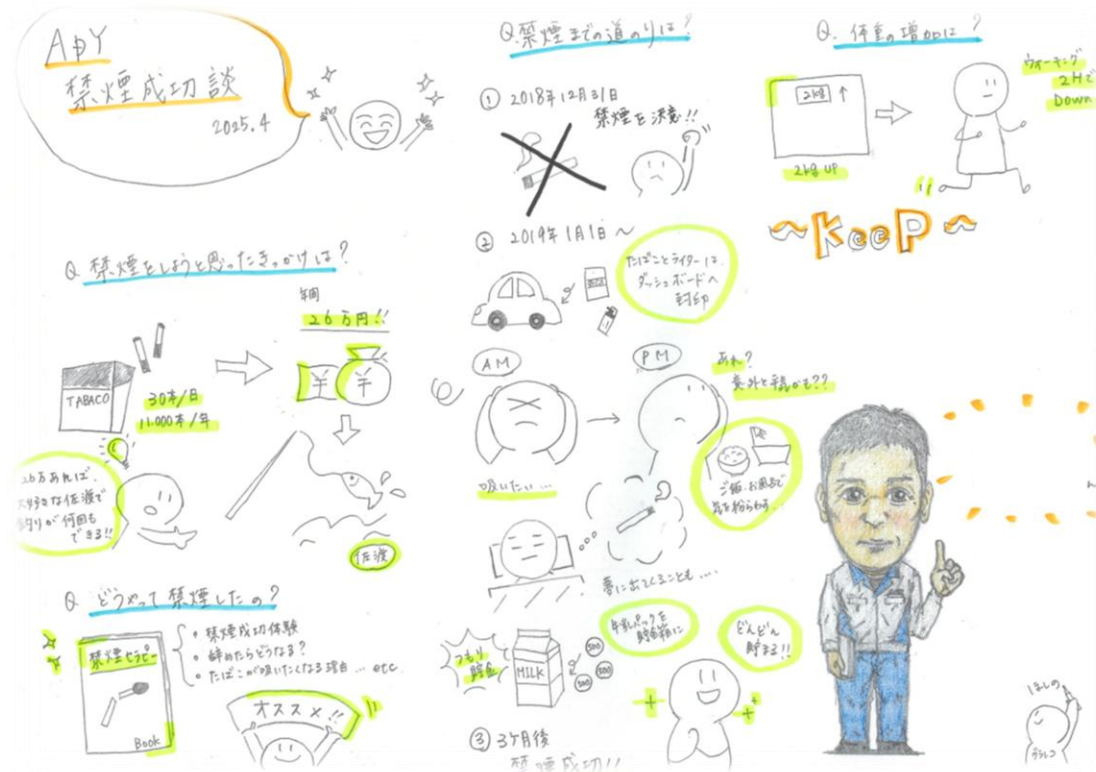 ApY
禁煙成功談
2025.4
Q. 禁煙をしようと思ったきっかけは?
年間
26万円!!
TABACO
30本/日
11.000本/年
¥
¥
26万あれば、
大好きな佐渡で
釣りが何回も
できる!!
佐渡
Q. どうやって禁煙したの?
禁煙セラピー
Book
・禁煙成功体験
・辞めたらどうなる?
・たばこが吸いたくなる理由 … etc
オススメ!!
Q.禁煙までの道のりは?
① 2018年12月31日
禁煙を決意!!
② 2019年1月1日~
たばことライターは
ダッシュボードへ
封印
AM
PM
あれ?
意外と平気かも??
吸いたい…
ご飯・お風呂で
気を紛らわす.
夢に出てくることも….
つもり
貯金
MILK
500
500
500
牛乳パックを
貯金箱に
どんどん
貯まる!!
③ 3ヶ月後
禁煙成功!!
Q. 体重の増加は?
2kg ↑
2kg UP
ウォーキング
2Hで
Down
~KeeP~
ほしの